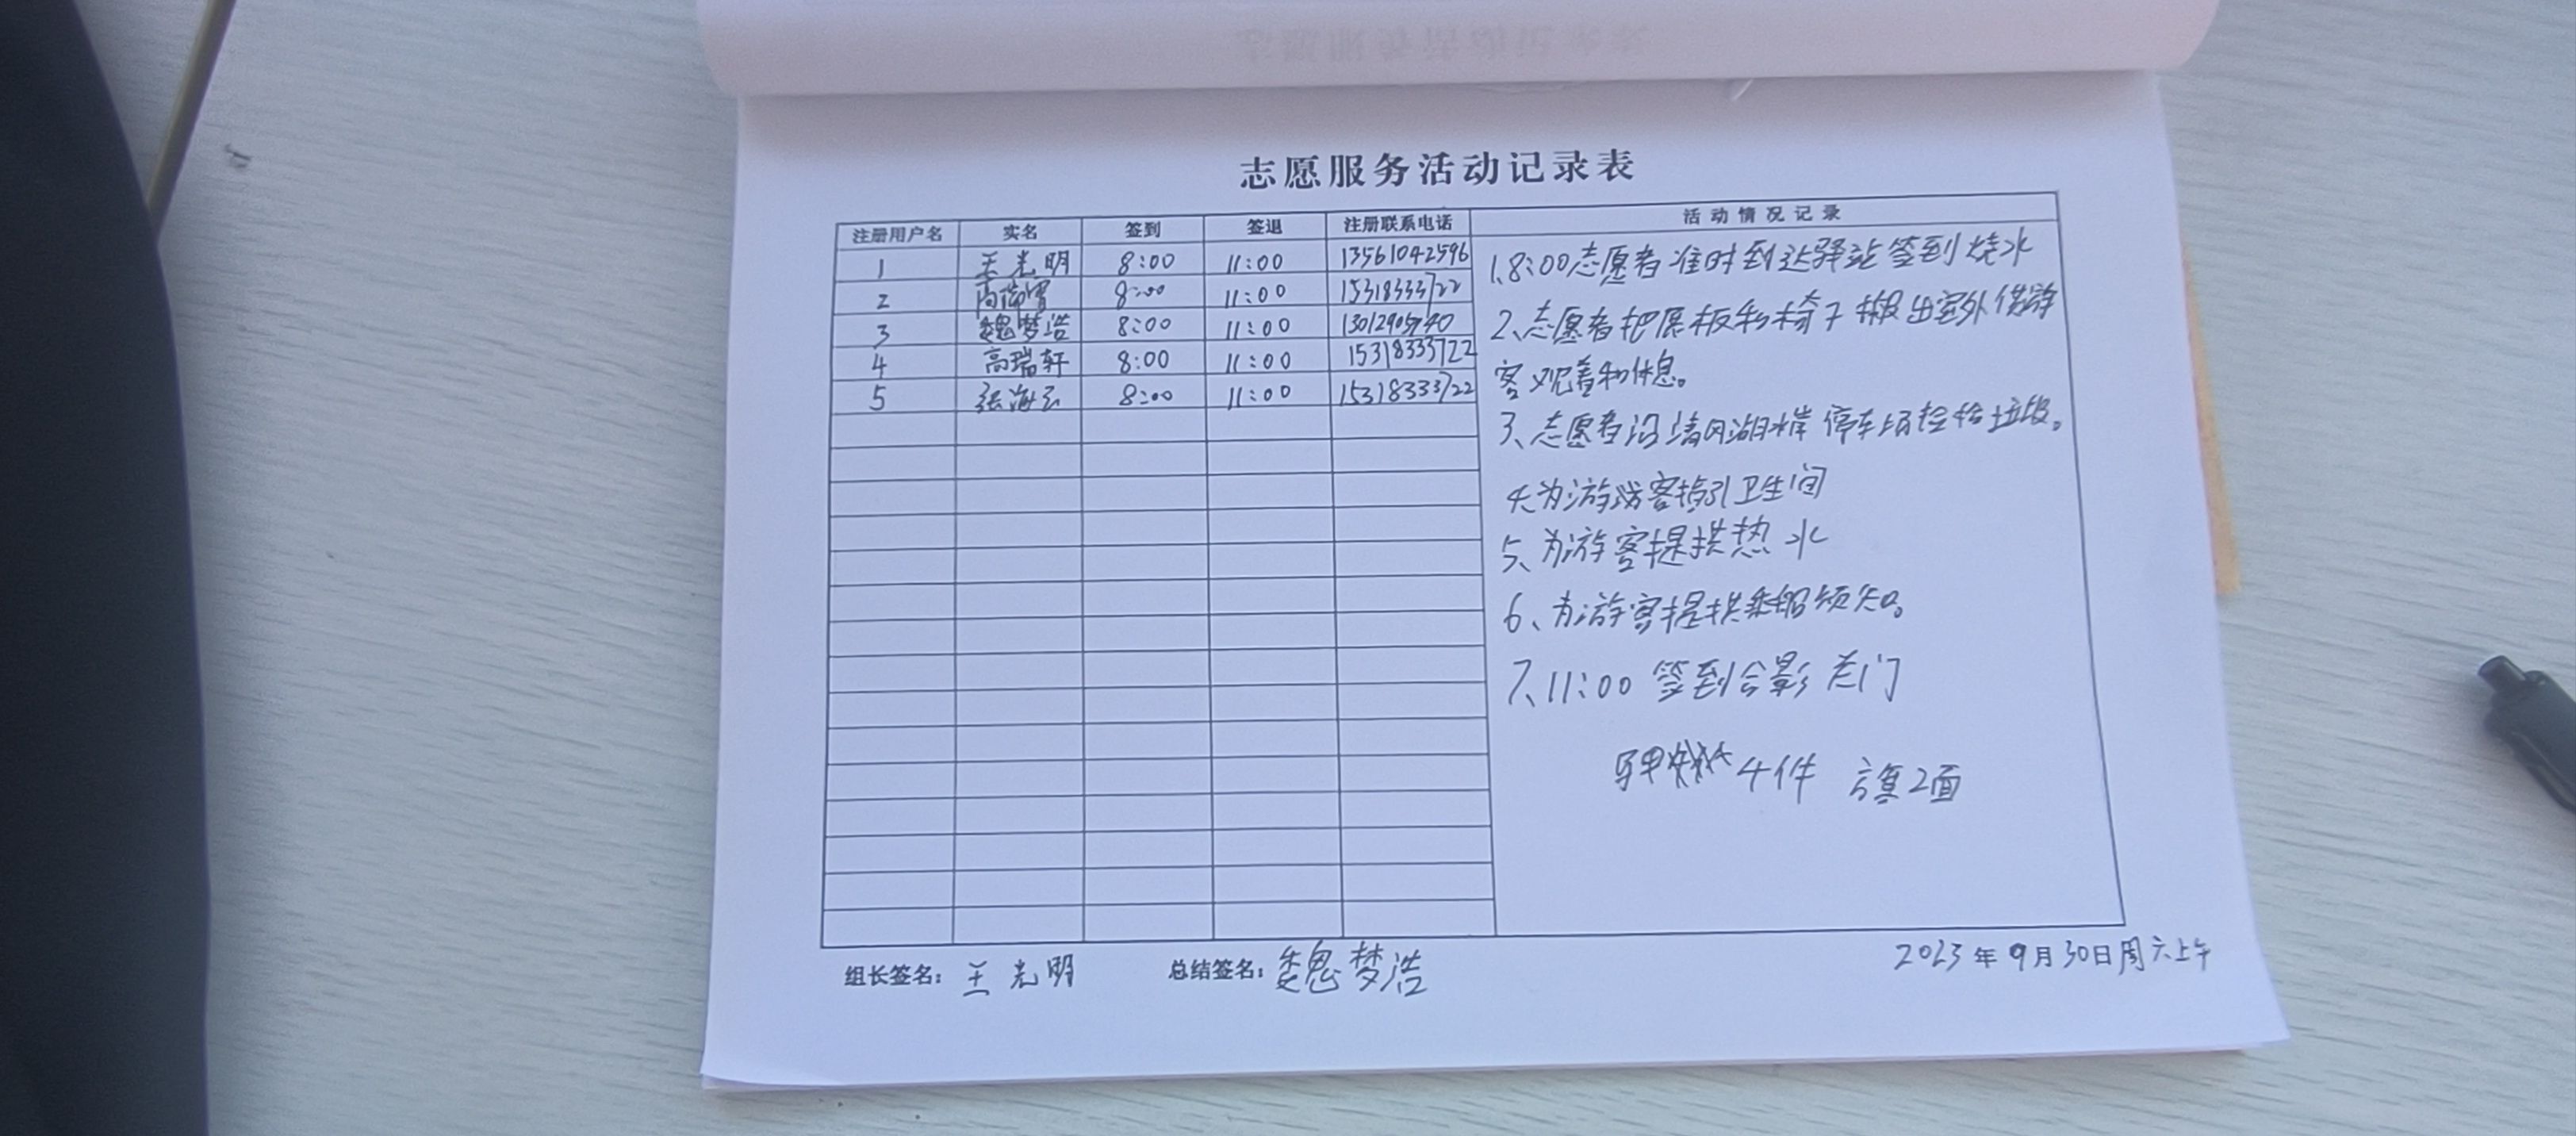 志愿服务活动记录表
注册用户名 实名 签到 签退 注册联系电话 活动情况记录
1 王光明 8:00 11:00 13561042596
2 8:00 11:00 15318333722
3 魏梦浩 8:00 11:00
4 高瑞轩 8:00 11:00 15318333722
5 张海云 8:00 11:00 15318333722
1.8:00志愿者准时到达驿站签到烧水
2、志愿者把展板和椅子搬出室外供游
客观看和休息。
3、志愿者沿清风湖岸停车场捡拾垃圾。
4.为游客指引卫生间
5、为游客提供热水
6、为游客提供乘船须知。
7、11:00 签到合影 关门
4件 旗2面
组长签名: 王光明 总结签名: 魏梦浩 2023年9月30日周六上午